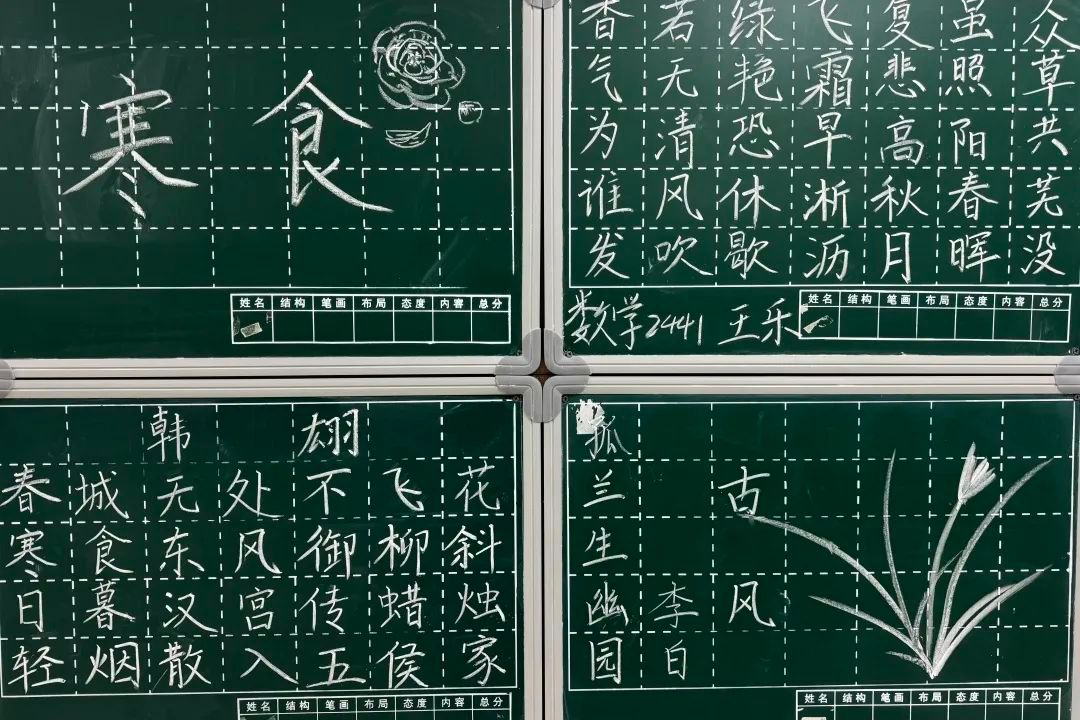 寒食
姓名 结构 笔画 布局 态度 内容 总分
众草共芜没
虽照阳春晖
复悲高秋月
飞霜早淅沥
绿艳恐休歇
若无清风吹
香气为谁发
数学2441 王乐
姓名 结构 笔画 布局 态度 内容 总分
韩翃
春城无处不飞花
寒食东风御柳斜
日暮汉宫传蜡烛
轻烟散入五侯家
姓名 结构 笔画 布局 态度 内容 总分
古风
李白
孤兰生幽园
姓名 结构 笔画 布局 态度 内容 总分